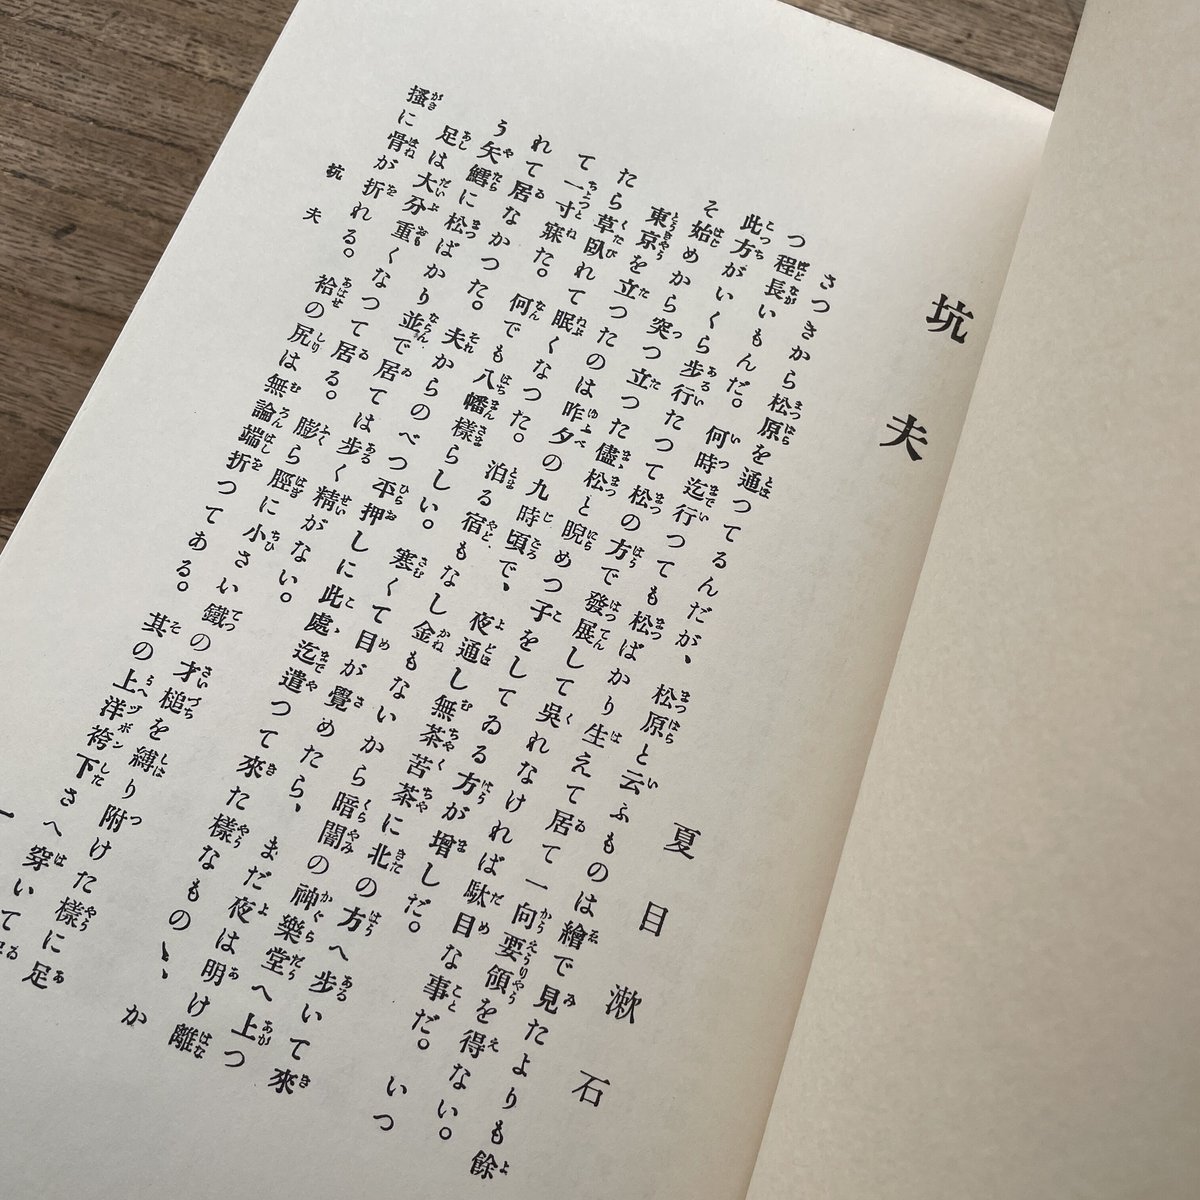 坑夫
夏目漱石
さつきから松原を通つてるんだが、松原と云ふものは繪で見たよりも餘
つ程長いもんだ。何時迄行つても松ばかり生えて居て一向要領を得ない。
此方がいくら歩行たつて松の方で發展して呉れなければ駄目な事だ。いつ
そ始めから突つ立つた儘松と睨めつ子をしてゐる方が增しだ。
東京を立つたのは昨夕の九時頃で、夜通し無茶苦茶に北の方へ歩いて來
たら草臥れて眠くなつた。泊る宿もなし金もないから暗闇の神樂堂へ上つ
て一寸寐た。何でも八幡樣らしい。寒くて目が覺めたら、まだ夜は明け離
れて居なかつた。夫からのべつ平押しに此處迄遣つて來た樣なものゝ、か
う矢鱈に松ばかり並で居ては歩く精がない。
足は大分重くなつて居る。膨ら脛に小さい鐵の才槌を縛り附けた樣に足
搔に骨が折れる。袷の尻は無論端折つてある。其の上洋袴下さへ穿いて
坑夫
一